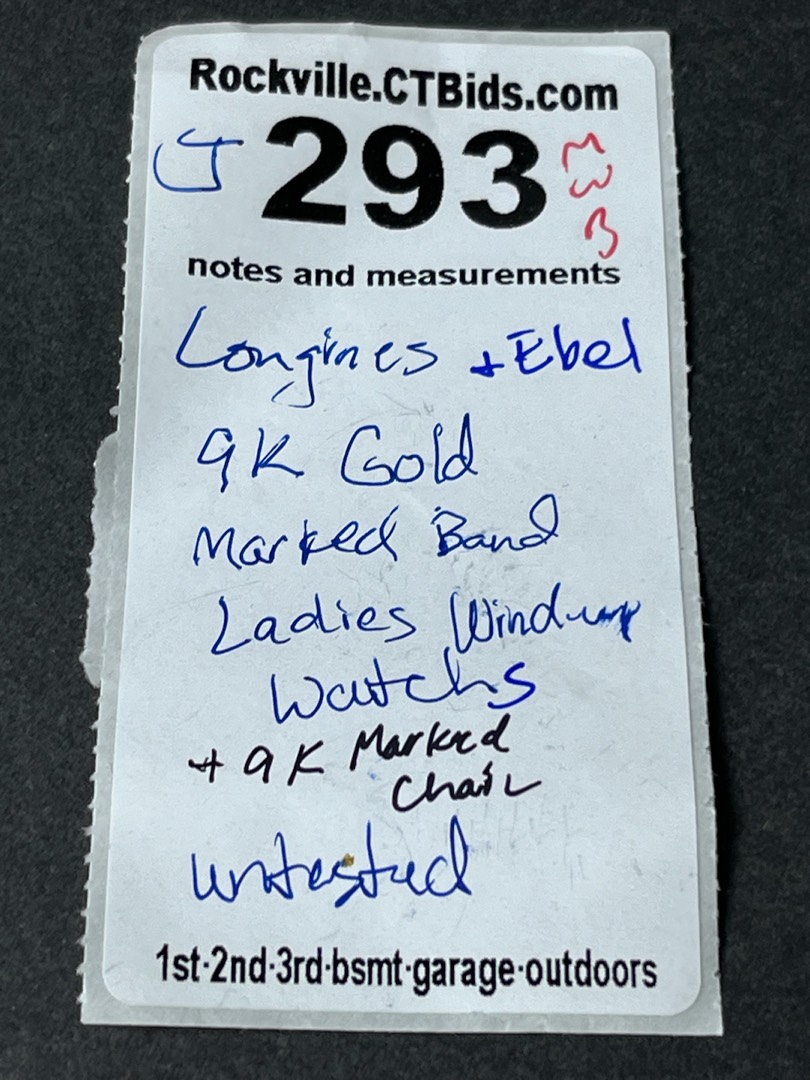 Rockville.CTBids.com
CJ 293 MWB
notes and measurements
Longines + Ebel
9K Gold
Marked Band
Ladies Windup
Watchs
+ 9K Marked
Chain
untested
1st·2nd·3rd·bsmt·garage·outdoors